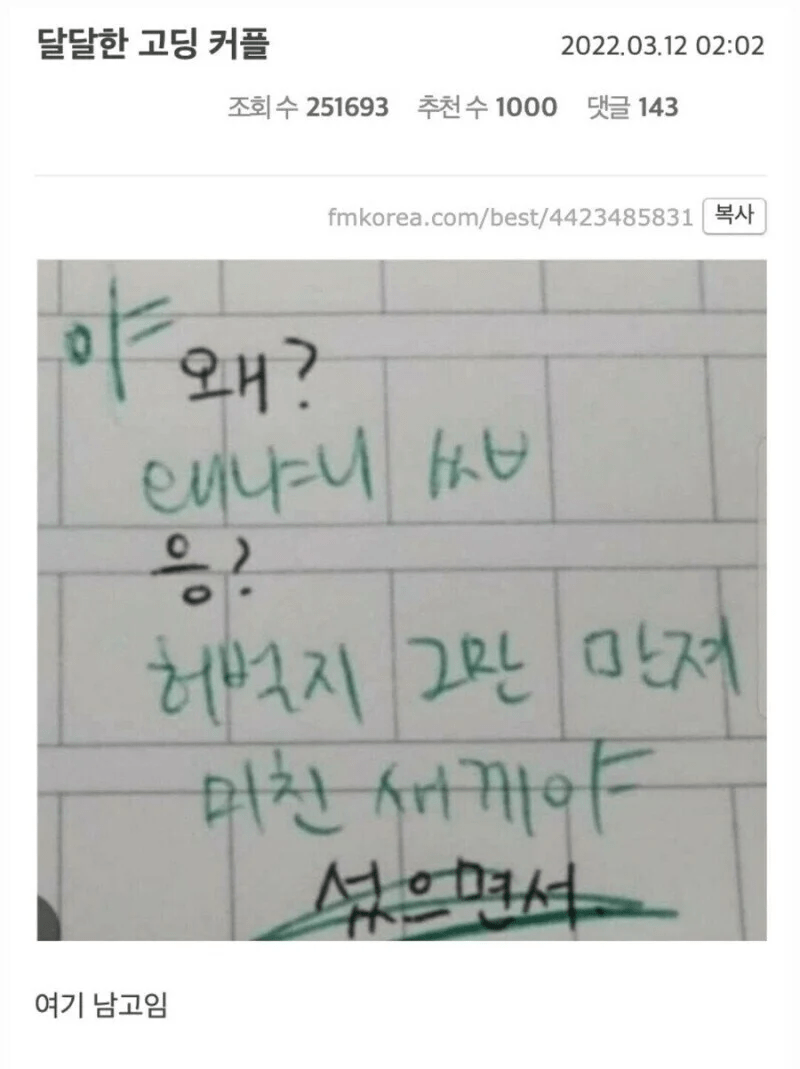 달달한 고딩 커플
2022.03.12 02:02
조회 수 251693 추천 수 1000 댓글 143
fmkorea.com/best/4423485831 복사
야
왜?
왜냐니 씨ㅂ
응?
허벅지 그만 만져
미친 새끼야
섰으면서.
여기 남고임